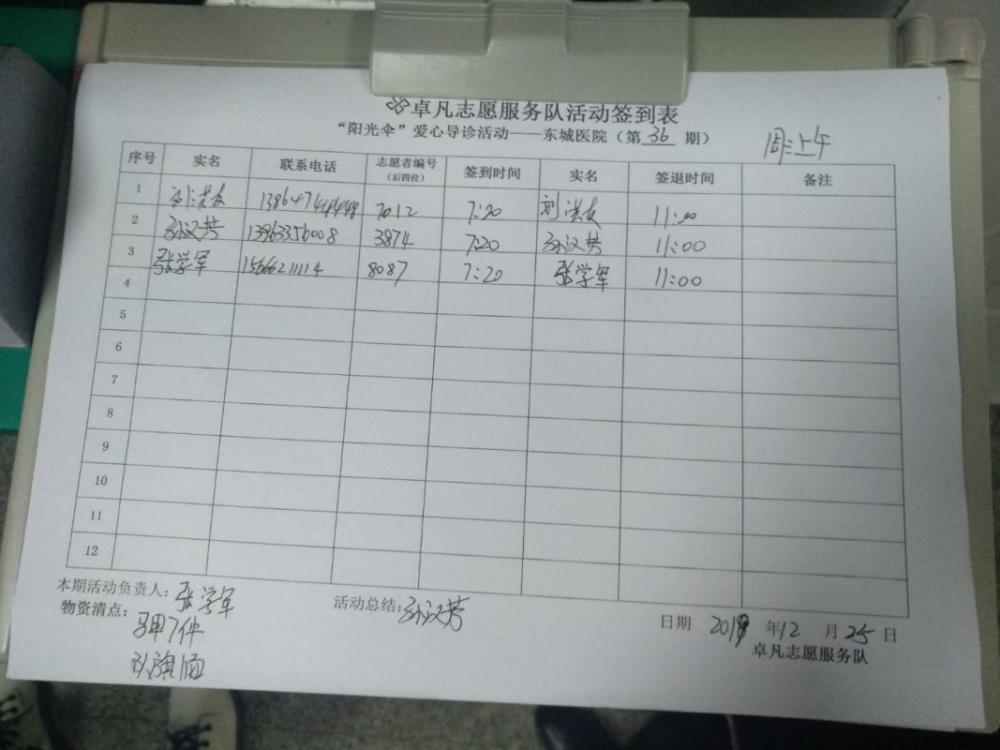 卓凡志愿服务队活动签到表
“阳光伞”爱心导诊活动——东城医院（第 36 期）
周三上午
序号 实名 联系电话 志愿者编号（后四位） 签到时间 实名 签退时间 备注
1 刘洪友 7012 7:20 刘洪友 11:00
2 孙汉芳 13963356008 3874 7:20 孙汉芳 11:00
3 张学军 15666211114 8087 7:20 张学军 11:00
4
5
6
7
8
9
10
11
12
本期活动负责人：张学军 活动总结：孙汉芳 日期 2019 年 12 月 25 日
物资清点：马甲7件
队旗1面
卓凡志愿服务队